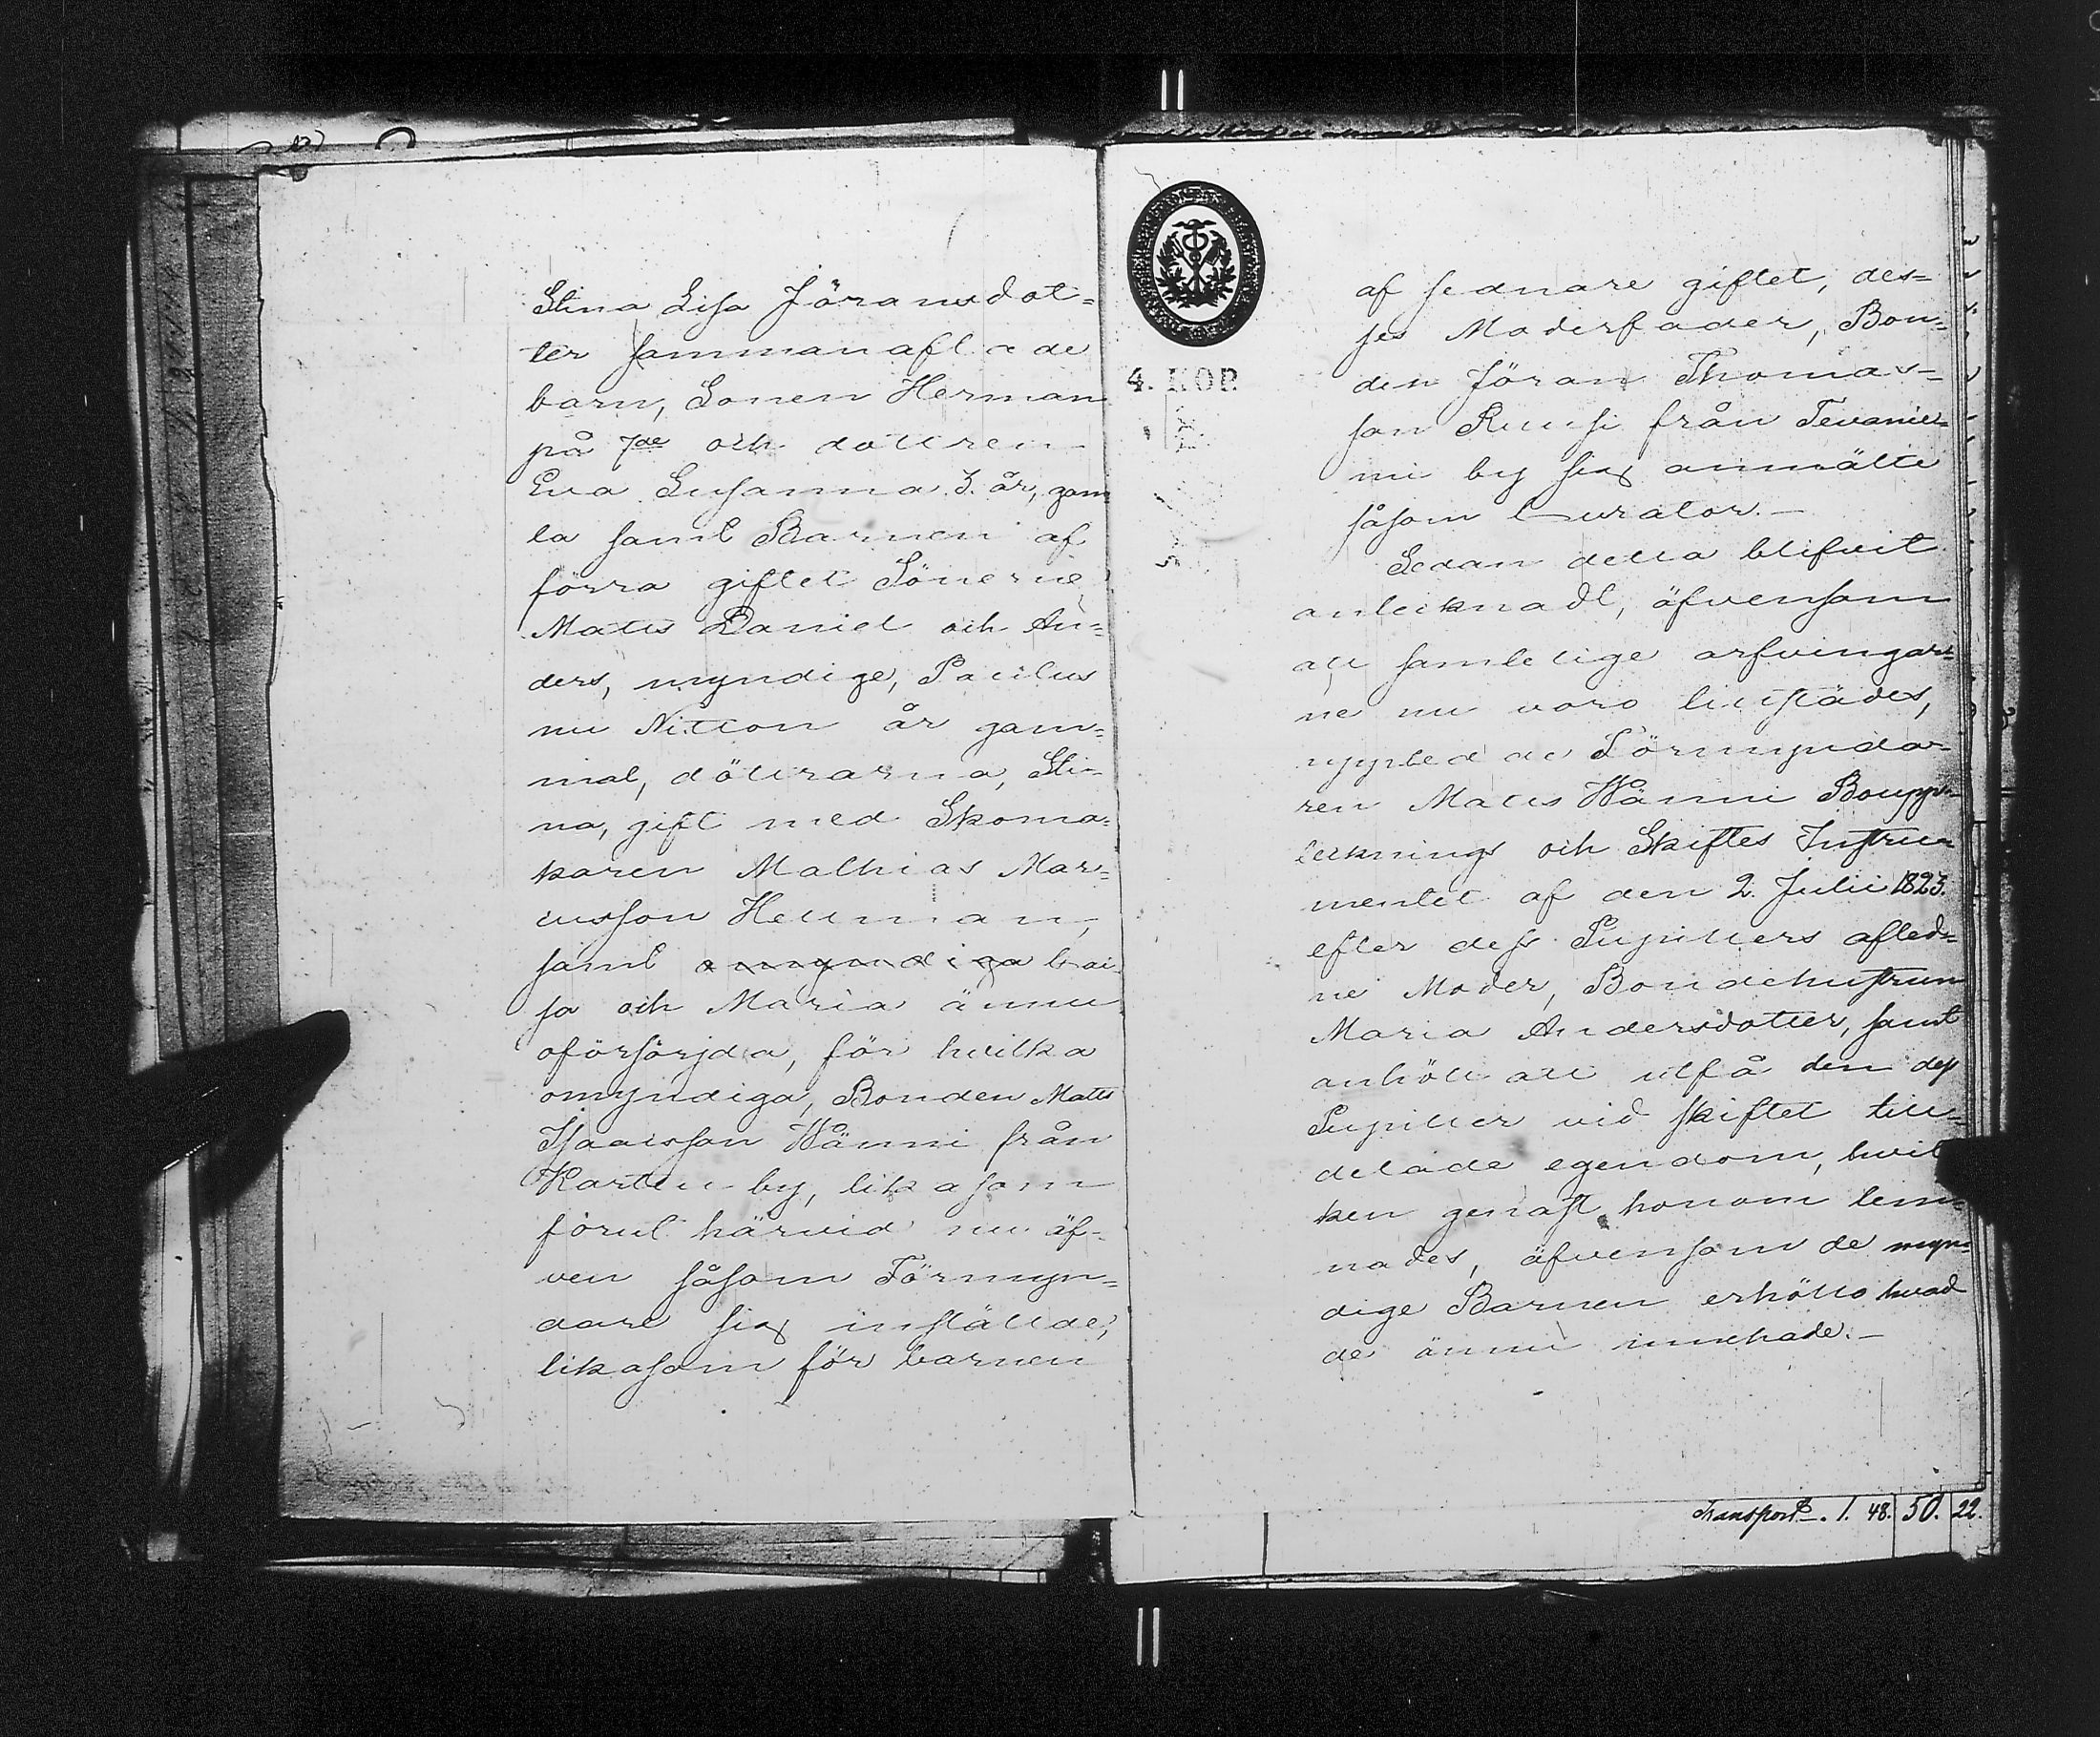 Stina Lisa Jöransdot=
ter sammanaflade
barn, Sonen Herman
på 7de och dottren
Eva Susanna 3. år, gam
la samt Barnen af
förra giftet Sönerne
Matts Daniel och An=
ders, myndige, Paulus
nu Nitton år gam=
mal, döttrarna, Sti-
na, gift med Skoma=
karen Mathias Mar=
cusson Hellman,
samt omyndiga Cai
sa och Maria ännu
oförsörjda, för hvilka
omyndiga, Bonden Matts
Isaacsson Wänni från
Karttu by, likasom
förut härvid nu äf-
ven såsom Förmyn=
dare sig instälde,
likasom för barnen
4. KOP.
af sednare giftet, des=
ses Moderfader, Bon=
den Jöran Thomas-
son Ruusi från Tevanie=
mi by sig anmälte
såsom Curator.-
Sedan detta blifvit
antecknadt, äfvensom
att samtelige arfvingar=
ne nu voro tillstädes,
upptedde Förmynda=
ren Matts Wänni Boupp=
tecknings och Skiftes Instru=
mentet af den 2. Julii 1823.
efter dess Pupillers afled=
ne Moder, Bondehustrun
Maria Andersdotter, samt
anhöll att utfå den dess
Pupiller vid skiftet till=
delade egendom, hvil
ken genast honom lem=
nades, äfvensom de myn=
dige Barnen erhöllo hvad
de ännu innehade.-
Transport. 1. 48. 50. 22.